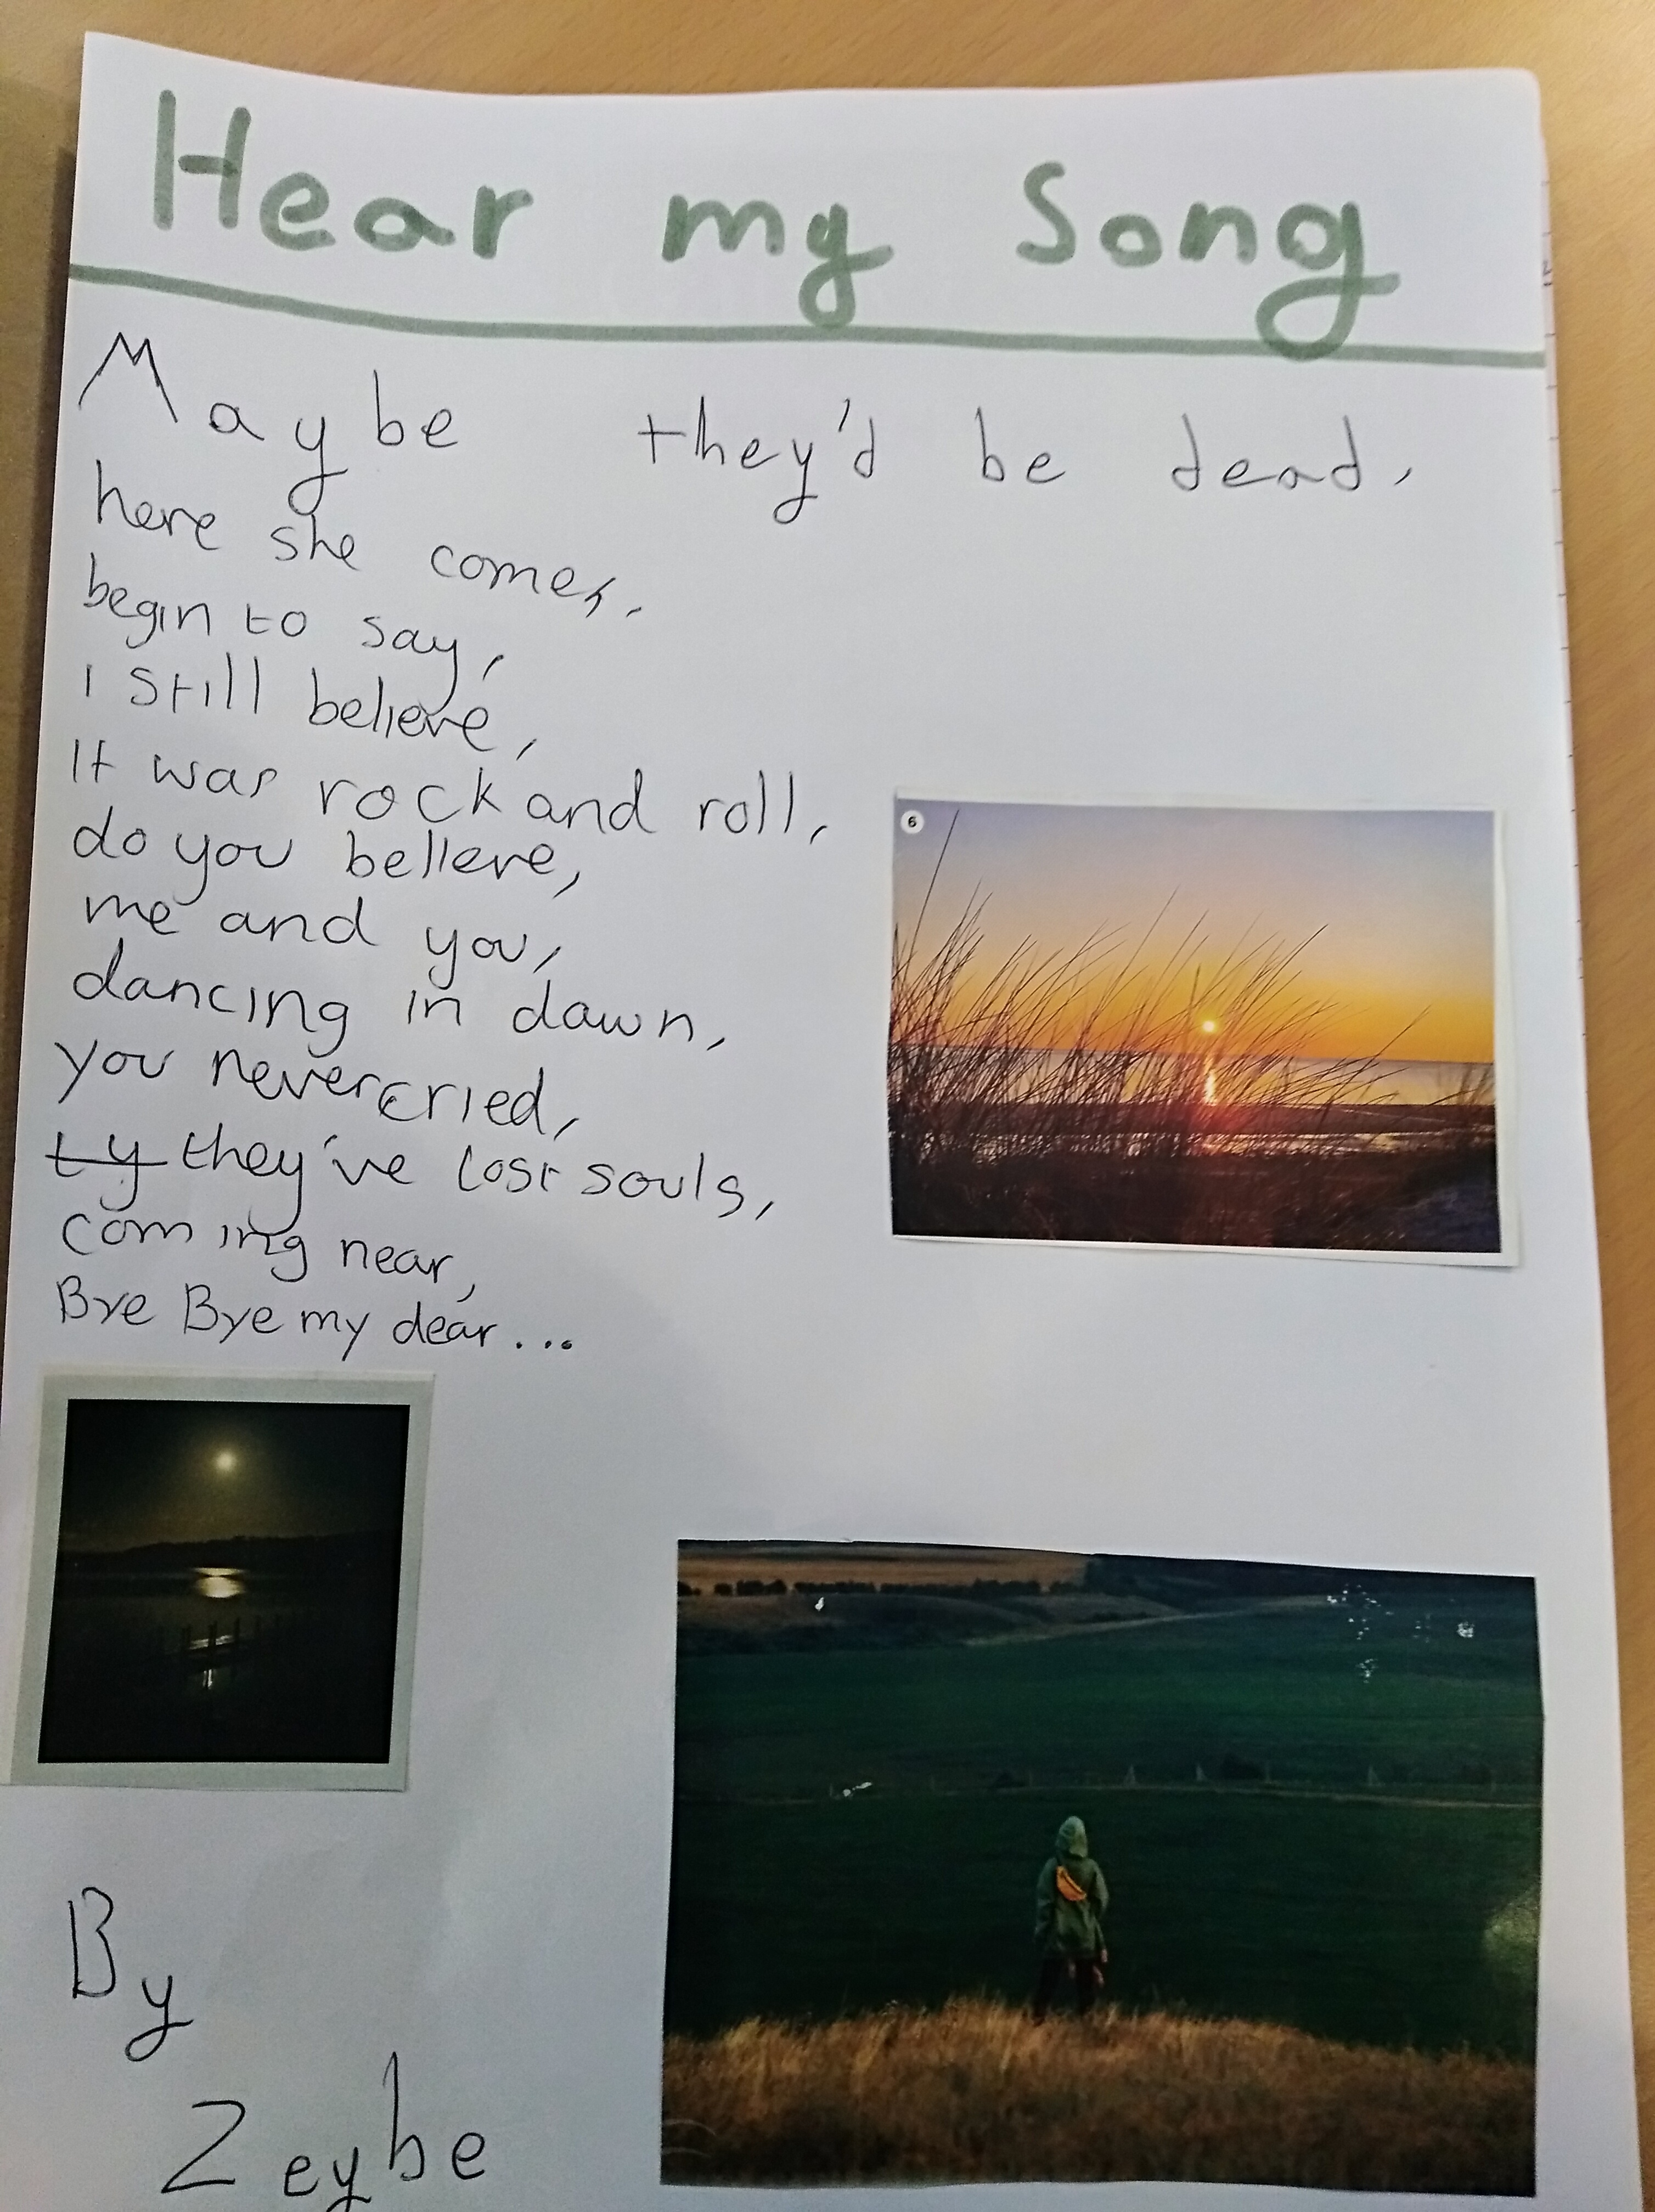 Hear my Song
Maybe they'd be dead,
here she comes,
begin to say,
I still believe,
It was rock and roll,
do you believe,
me and you,
dancing in dawn,
you never cried,
ty they've lost souls,
coming near,
Bye Bye my dear...
6
By
Zeybe